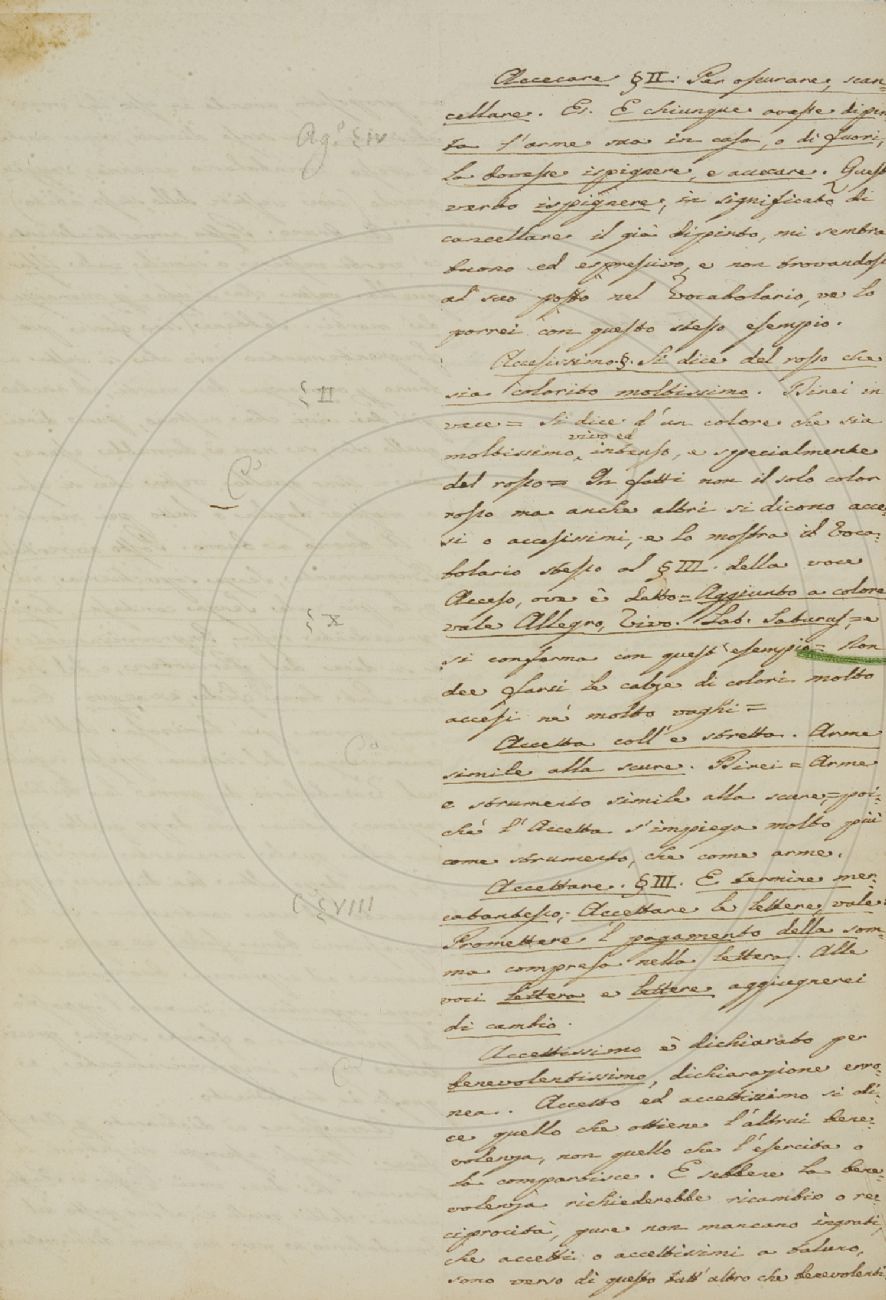 Accecare §II. Per oscurare, scan-
cellare. Es. E chiunque avesse dipin
ta l'arme sua in casa, o di fuori,
la dovesse ispignere, e accecare. Quest
verbo ispignere, in significato di
cancellare il già dipinto, mi sembra
buono ed espressivo, e non trovandosi
al suo posto nel Vocabolario, ve lo
porrei con questo stesso esempio.
Accesissimo. §. Si dice del rosso che
sia colorito moltissimo. Direi in
vece = Si dice d'un colore che sia
vivo ed
moltissimo, intenso, e specialmente
del rosso = In fatti non il solo color
rosso ma anche altri si dicono acce-
si o accesissimi, e lo mostra il Voca-
bolario stesso al §III. della voce
Acceso, ove è detto = Aggiunto a colore
vale Allegro, Vivo. Lat. Saturus, = e
si conferma con quest'esempio = Non
dee farsi le calze di colori molto
accesi nè molto vaghi =
Accetta coll'e stretta. Arme
simile alla scure. Direi = Arme
e strumento simile alla scure, = poi-
chè l'Accetta s'impiega molto più
come strumento, che come arme.
Accettare. §III. E termine mer-
catantesco; Accettare le lettere, vale
Promettere l pagamento della som-
ma compresa nella lettera. Alle
voci lettera e lettere aggiugnerei
di cambio.
Accettissimo è dichiarato per
benevolentissimo, dichiarazione erro-
nea. Accetto ed accettissimo si di-
ce quello che ottiene l'altrui bene-
volenza, non quello che l'esercita o
la compartisce. E sebbene la bene-
volenza richiederebbe ricambio o re-
ciprocità, pure non mancano ingrati,
che accetti o accettissimi a taluno,
sono verso di questo tutt'altro che benevolenti